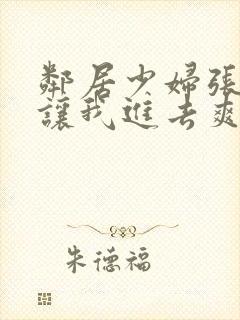 鄰居少婦張
讓我進去爽
朱德福